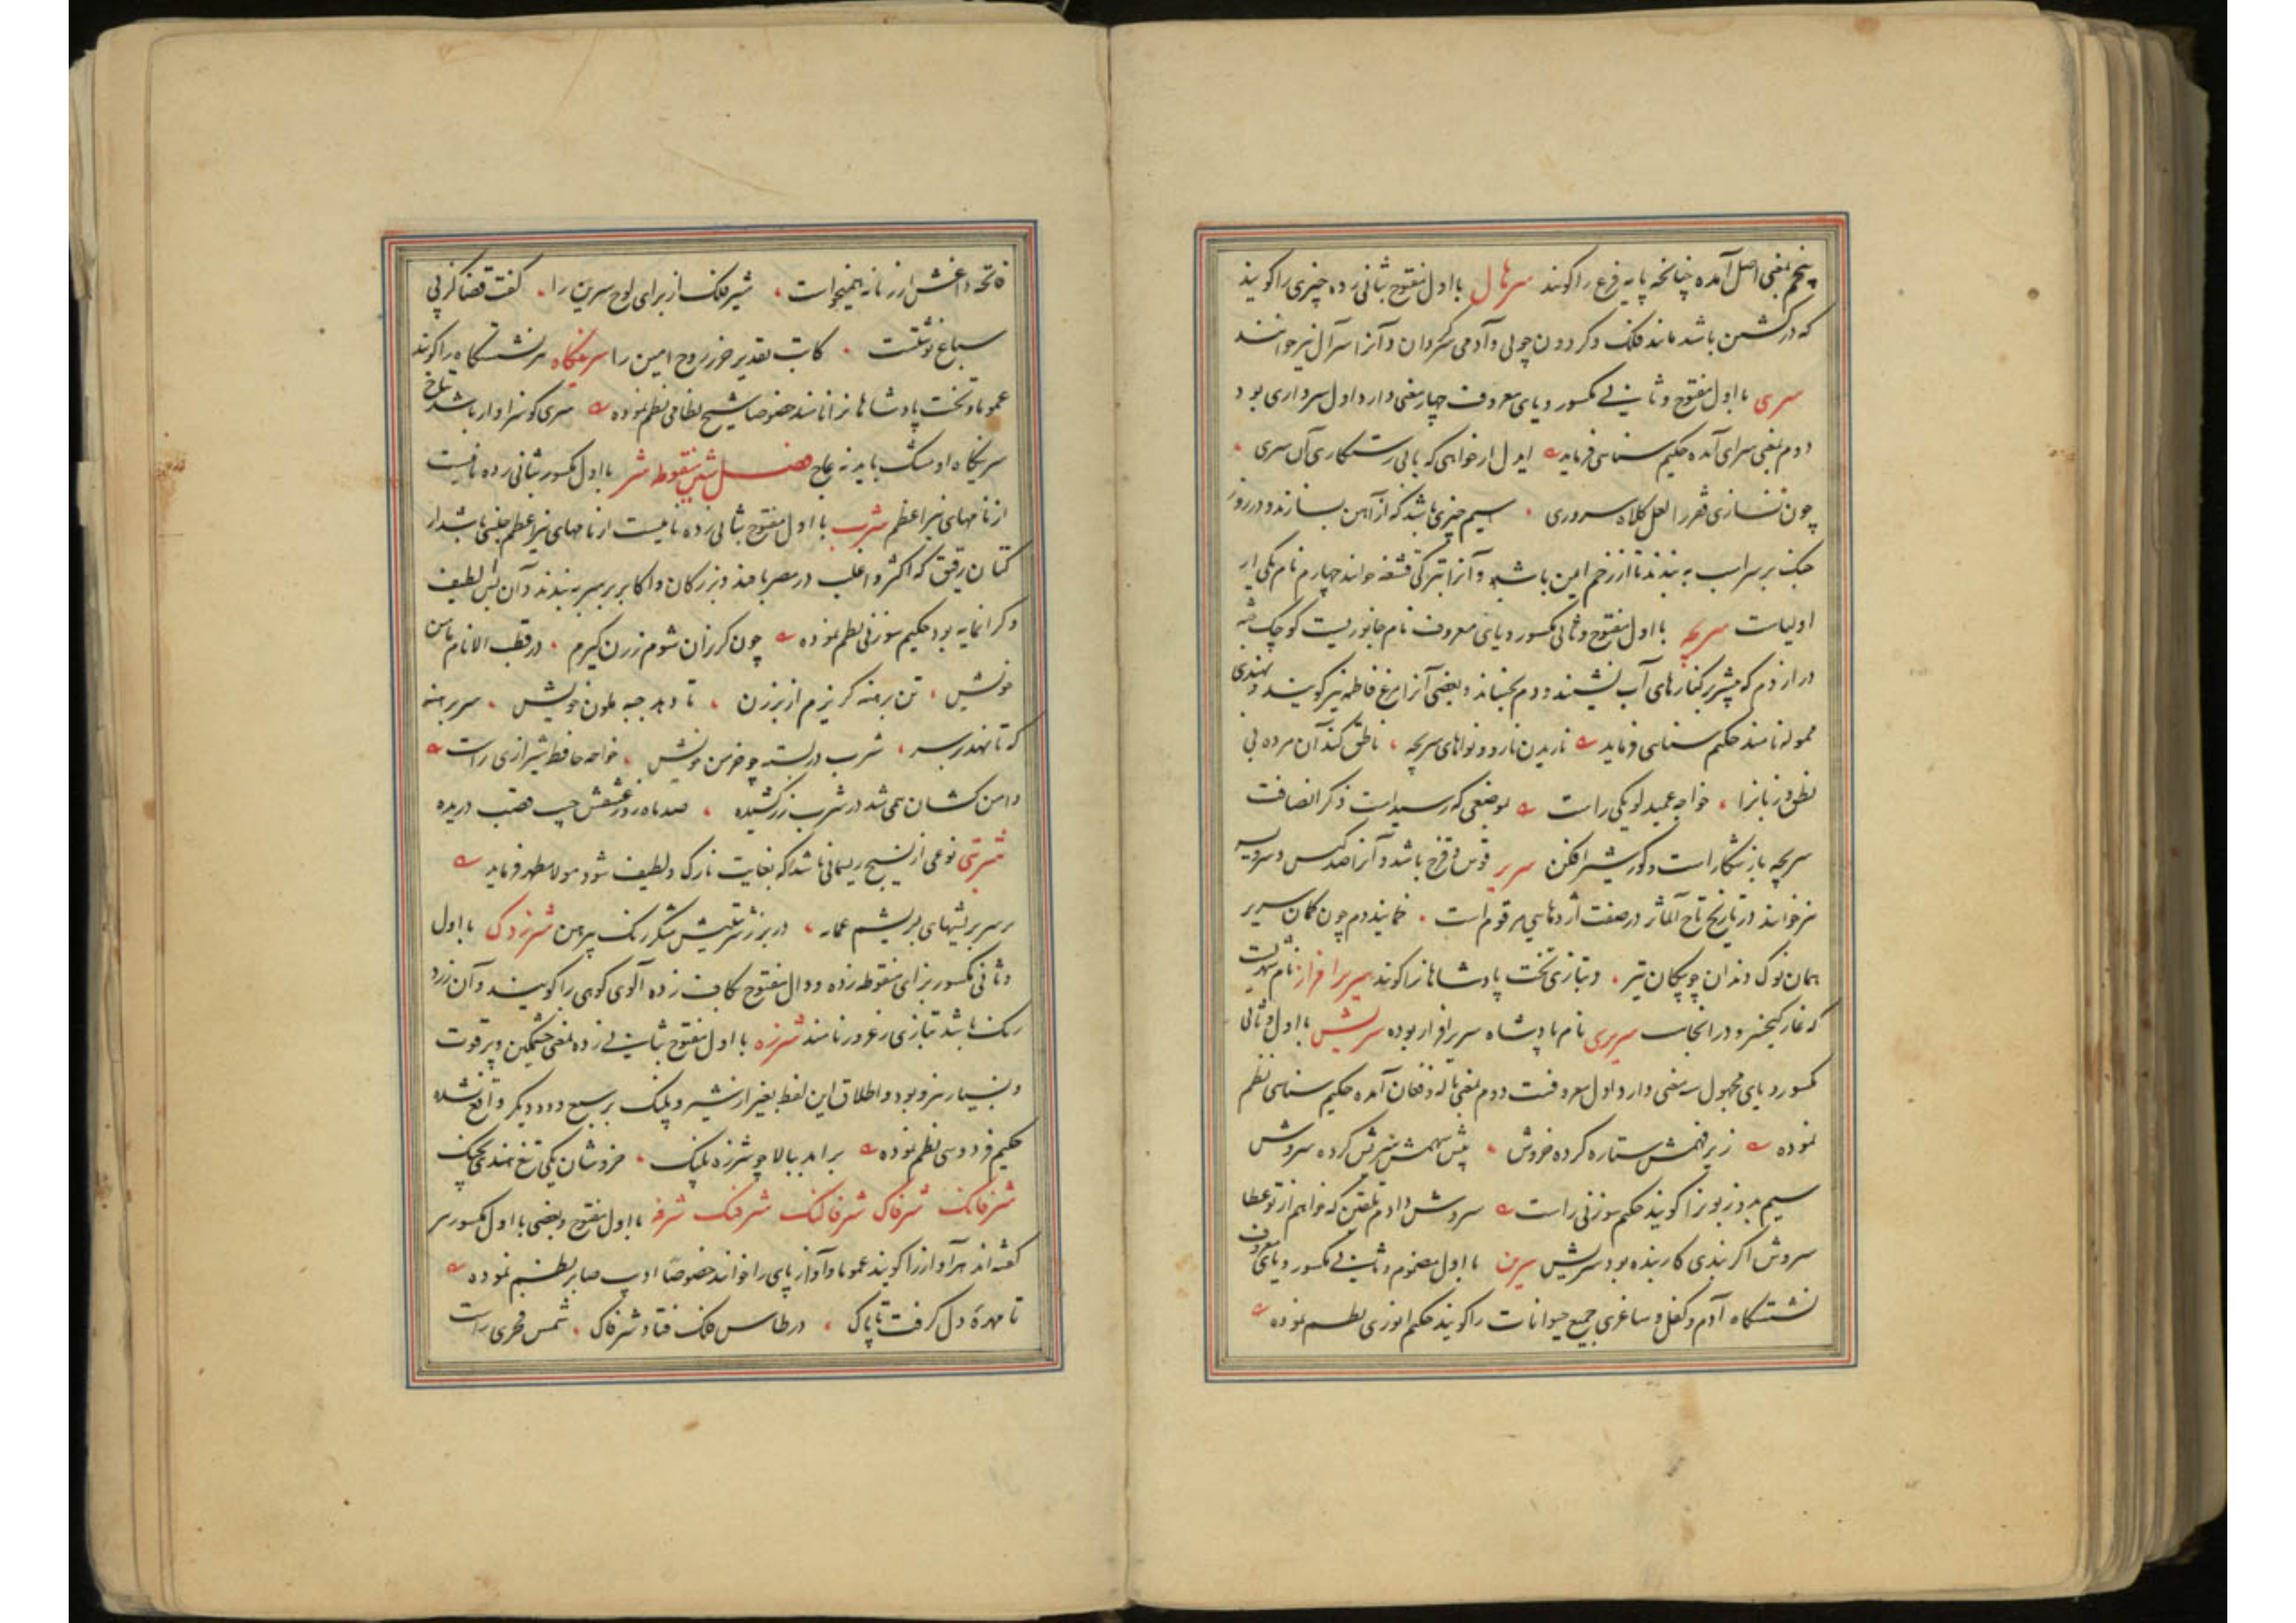 پنجم بمعنی اصل آمده چنانچه پایه فرع را گویند سرهال با اول مفتوح بثانی زده چیزی را گویند
که در گشتن باشد مانند فلک و گردون چوبی و آدمی سرگردان و آنرا سرآل نیز خوانند
سری با اول مفتوح و ثانی مکسور و یای معروف چهار معنی دارد اول سرداری بود
دوم بمعنی سرای آمده حکیم سنایی فرماید ایدل ار خواهی که یابی رستگاری آن سری
چون نسازی فقر را لعل کلاه سروری سیم چیزی باشد که از آهن بسازند و در روز
جنک بر سر اسب به بندند تا از زخم ایمن باشد و آنرا بترکی قشقه خوانند چهارم نام یکی از
اولیاست سریچه با اول مفتوح و ثانی مکسور و یای معروف نام جانوریست کوچک جثه
دراز دم که بیشتر بر کنارهای آب نشیند و دم بجنباند و بعضی آنرا مرغ فاطمه نیز گویند و بهندی
ممولا نامند حکیم سنایی فرماید نازیدن نارو و نواهای سریچه ناطق کند آن مرده بی
نطق و زبانرا خواجه عمید لویکی راست بموضعی که رسیداست ذکر انصافت
سریچه باز شکار است و گور شیر افکن سریر قوس قزح باشد و آنرا صدکیس و سرویسه
نیز خوانند در تاریخ تاج المآثر در صفت اژدهایی مرقوم است خمانیده دم چون کمان سریر
همان نوک دندان چو پیکان تیر و بتازی تخت پادشاهانرا گویند سریر افراز نام شهریست
که غار کیخسرو در انجاست سریری نام پادشاه سریر افراز بوده سریش با اول و ثانی
مکسور و یای مجهول سه معنی دارد اول معروفست دوم بمعنی ناله و فغان آمده حکیم سنایی نظم
نموده زیر فهمش ستاره کرده خروش پیش سهمش سریش کرده سروش
سیم بد و زبونرا گویند حکیم سوزنی راست سروش دادم تلقین که خواهم از تو عطا
سروش اگر بندی کار بنده بود سریش سرین با اول مضموم و ثانی مکسور و یای معروف
نشستگاه آدم و کفل و ساغری جمیع حیوانات را گویند حکیم انوری نظم نموده
فاتحه داغش از زمانه همیخواست شیر فلک از برای لوح سرین را گفت قضا کز پی
سباع نوشتست کاتب تقدیر حرز روح امین را سرینگاه سر نشستگاه را گویند
عموما و تخت پادشاهانرا نامند خصوصا شیخ نظامی نظم نموده سری کو سزاوار باشد بتاج
سرینگاه او مشک باید نه عاج فصل شین منقوطه شر با اول مکسور بثانی زده نامیست
از نامهای نیر اعظم شرب با اول مفتوح بثانی زده نامیست از نامهای نیر اعظم جنسی باشد از
کتان رقیق که اکثر و اغلب در مصر بافند و بزرگان و اکابر بر سر به بندند و آن بس لطیف
و گرانمایه بود حکیم سوزنی نظم نموده چون گریزان شوم ز زن گیرم در قطب الانام
خویش تن برهنه گریزم از بر زن تا دهد جبه ملون خویش سر برهنه
که تا نهد بر سر شرب دربسته چو خرمن خویش خواجه حافظ شیرازی راست
دامن کشان همی شد در شرب زرکشیده صد ماهرو ز عشقش جیب قصب دریده
شربتی نوعی از نسیج ریسمانی باشد که بغایت نازک و لطیف شود مولانا مطهر فرماید
بر سر بریشهای بریشم عمار در بر ز شربتیش شکر رنگ پیرهن شرزدک با اول
و ثانی مکسور بزای منقوطه زده و دال مفتوح بکاف زده آلوی کوهی را گویند و آن زرد
رنگ باشد بتازی زعرور نامند شرزه با اول مفتوح بثانی زده بمعنی خشمگین و پر قوت
و بسیار نیرو بود و اطلاق این لفظ بغیر از شیر و پلنک بر سبع و دد دیگر واقع نشده
حکیم فردوسی نظم نموده برامد ببالا چو شرزه پلنک خروشان یکی تیغ هندی بچنک
شرفانک شرفاک شرفالنک شرفنک شرفه با اول مفتوح و بعضی با اول مکسور نیز
گفته اند هر آواز را گویند عموما و آواز پای را خوانند خصوصا ادیب صابر نظم نموده
تا مهره دل گرفت تاپاک در طاس فلک فتاد شرفاک شمس فخری راست